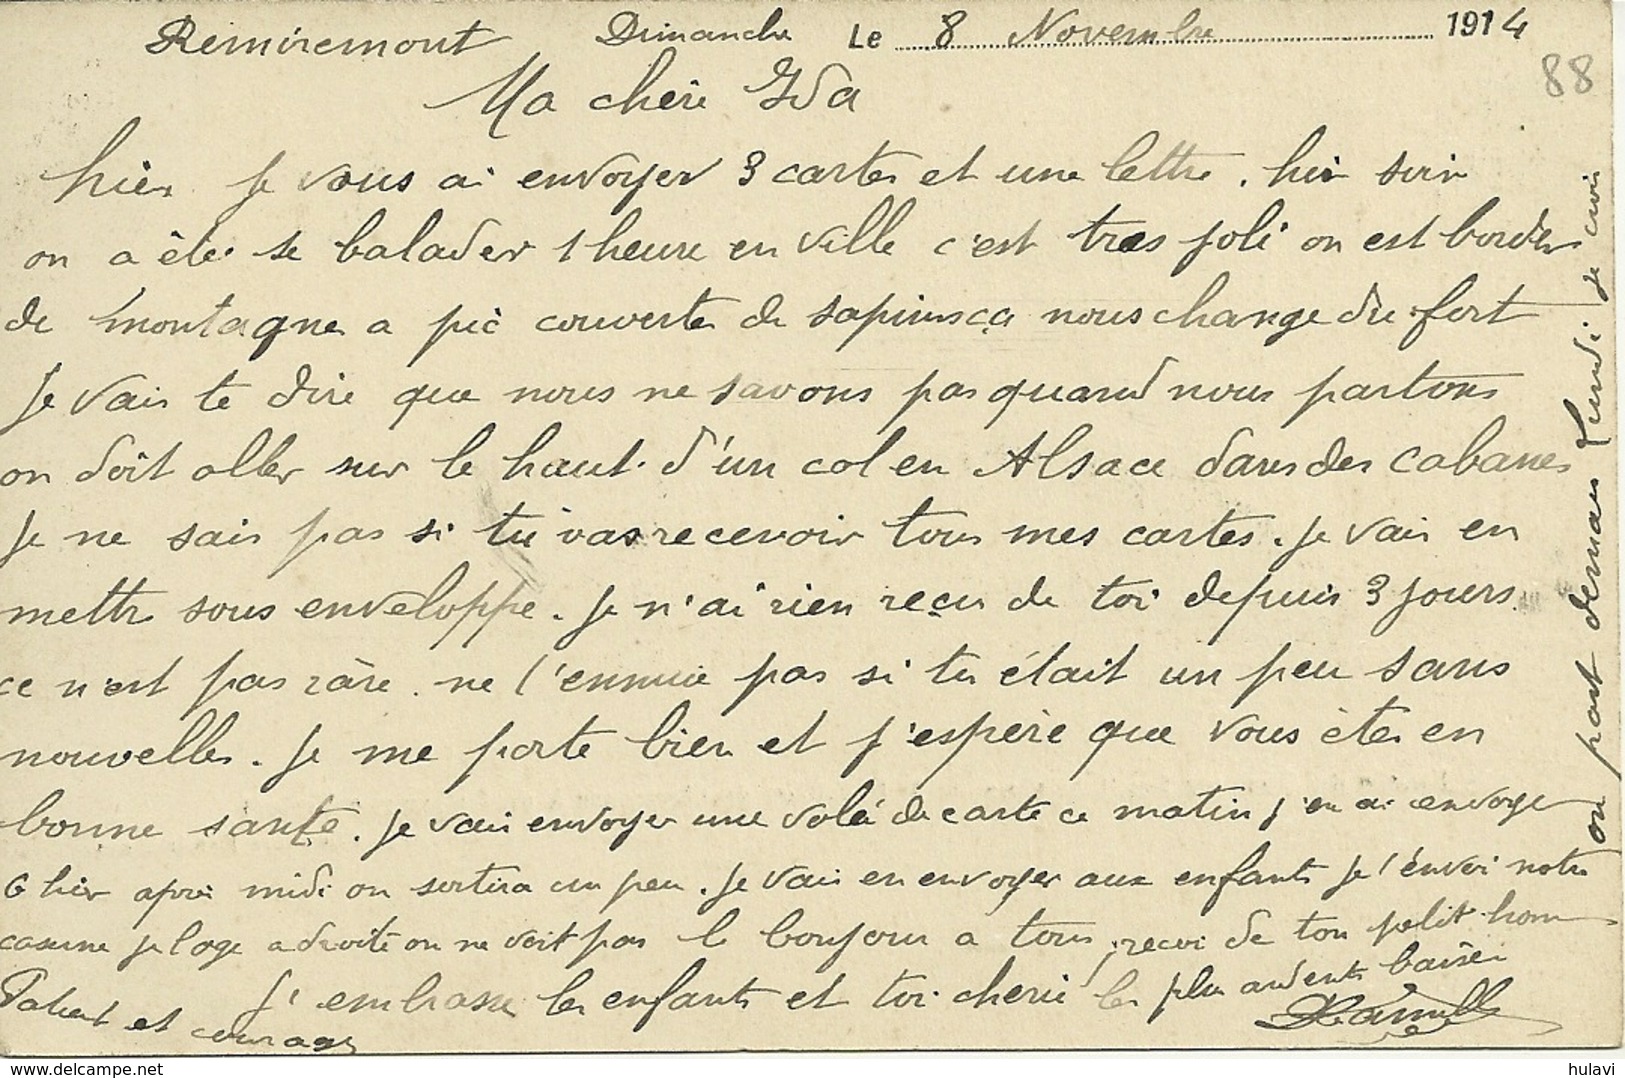 Remiremont Dimanche Le 8 Novembre 1914
88
Ma chère Ida
hier je vous ai envoyer 3 cartes et une lettre . hier soir
on a été se balader 1 heure en ville c'est tres joli on est border
de montagnes a pic couvertes de sapins ça nous change du fort
Je vais te dire que nous ne savons pas quand nous partons
on doit aller sur le haut d'un col en Alsace dans des cabanes
Je ne sais pas si tu vas recevoir tous mes cartes . Je vais en
mettre sous enveloppe . Je n'ai rien reçu de toi depuis 3 jours.
ce n'est pas rare . ne t'ennuie pas si tu était un peu sans
nouvelles . Je me porte bien et j'espère que vous êtes en
bonne santé . Je vais envoyer une volé de carte ce matin j'en ai envoyer
6 hier apres midi on sortira un peu . Je vais en envoyer aux enfants Je t'envoi notre
caserne je loge a droite on ne voit pas le bonjour a tous , recoi de ton petit homme
les plus ardents baisers
J'embrasse les enfants et toi cherie
Patient et courage
Camille
on part demain lundi je crois
hulavi